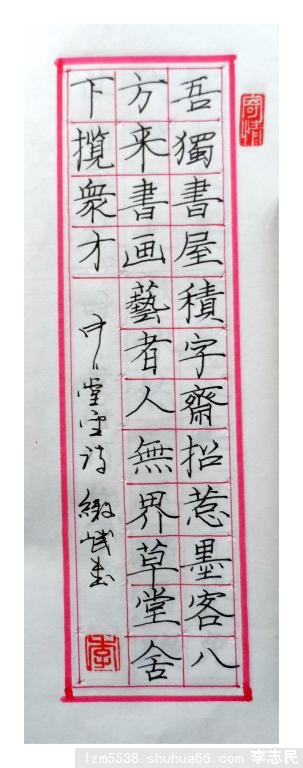 吾獨書屋積字齋招惹墨客八
方来書画藝者人無界草堂舍
下揽衆才
堂雪诗
書
寄情
李
lzm5538.shuhua66.com 李志民